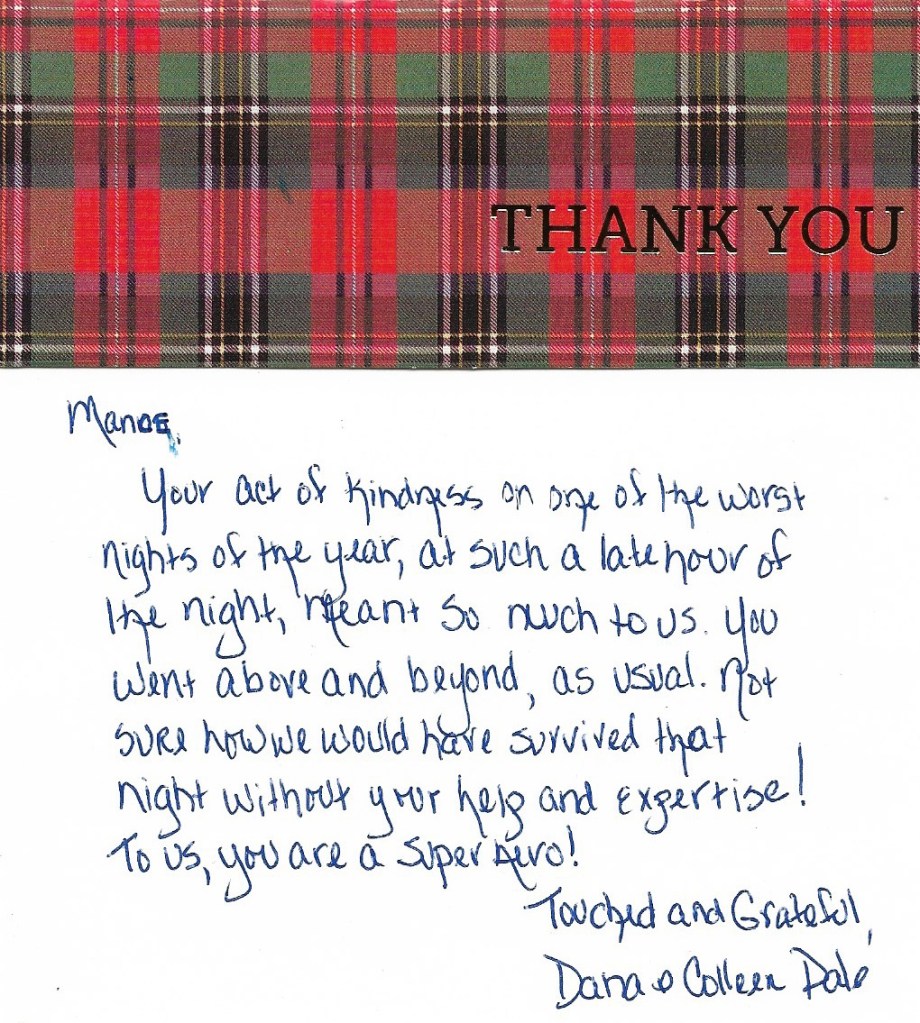 THANK YOU
Your act of kindness on one of the worst
nights of the year, at such a late hour of
the night, meant so much to us. You
went above and beyond, as usual. Not
sure how we would have survived that
night without your help and expertise!
To us, you are a super hero!
Touched and Grateful,
Dana & Colleen Dale